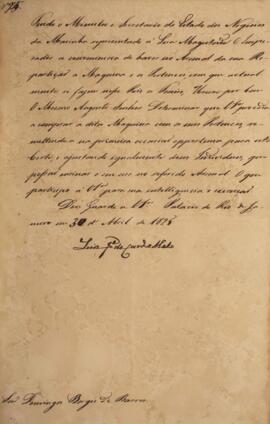 Tendo o Ministro e Secretario de Estado dos Negocios
da Marinha representado a Sua Magestade O Impe-
rador a conveniencia de haver no Arsenal da sua Re-
partição a Maquina e os Pertences, com que actual-
mente se fazem
O Mesmo Augusto Senhor Determinar que V.Sª proceda
a comprar a dita Maquina com a seus Pertences, re-
mettendo na primeira occasião opportuna para esta
Corte, e ajustando igualmente dous Individuos, que
possão ensinar o seu uso no referido Arsenal. O que
participo a V.Sª para sua intelligencia e execução.
Deos Guarde a V.Sª Palacio do Rio de Ja-
neiro em 30 de Abril de 1825
Luiz Jé de Carvº e Mello
Snr Domingos Borges de Barros